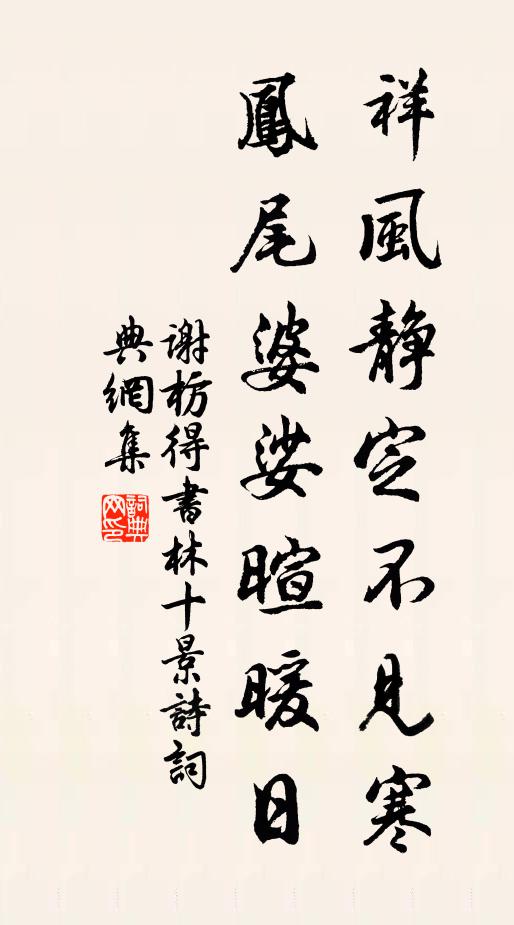 祥風靜定不見寒
鳳尾婆娑暄暖日
謝枋得書林十景詩詞
典網集
詞典網印